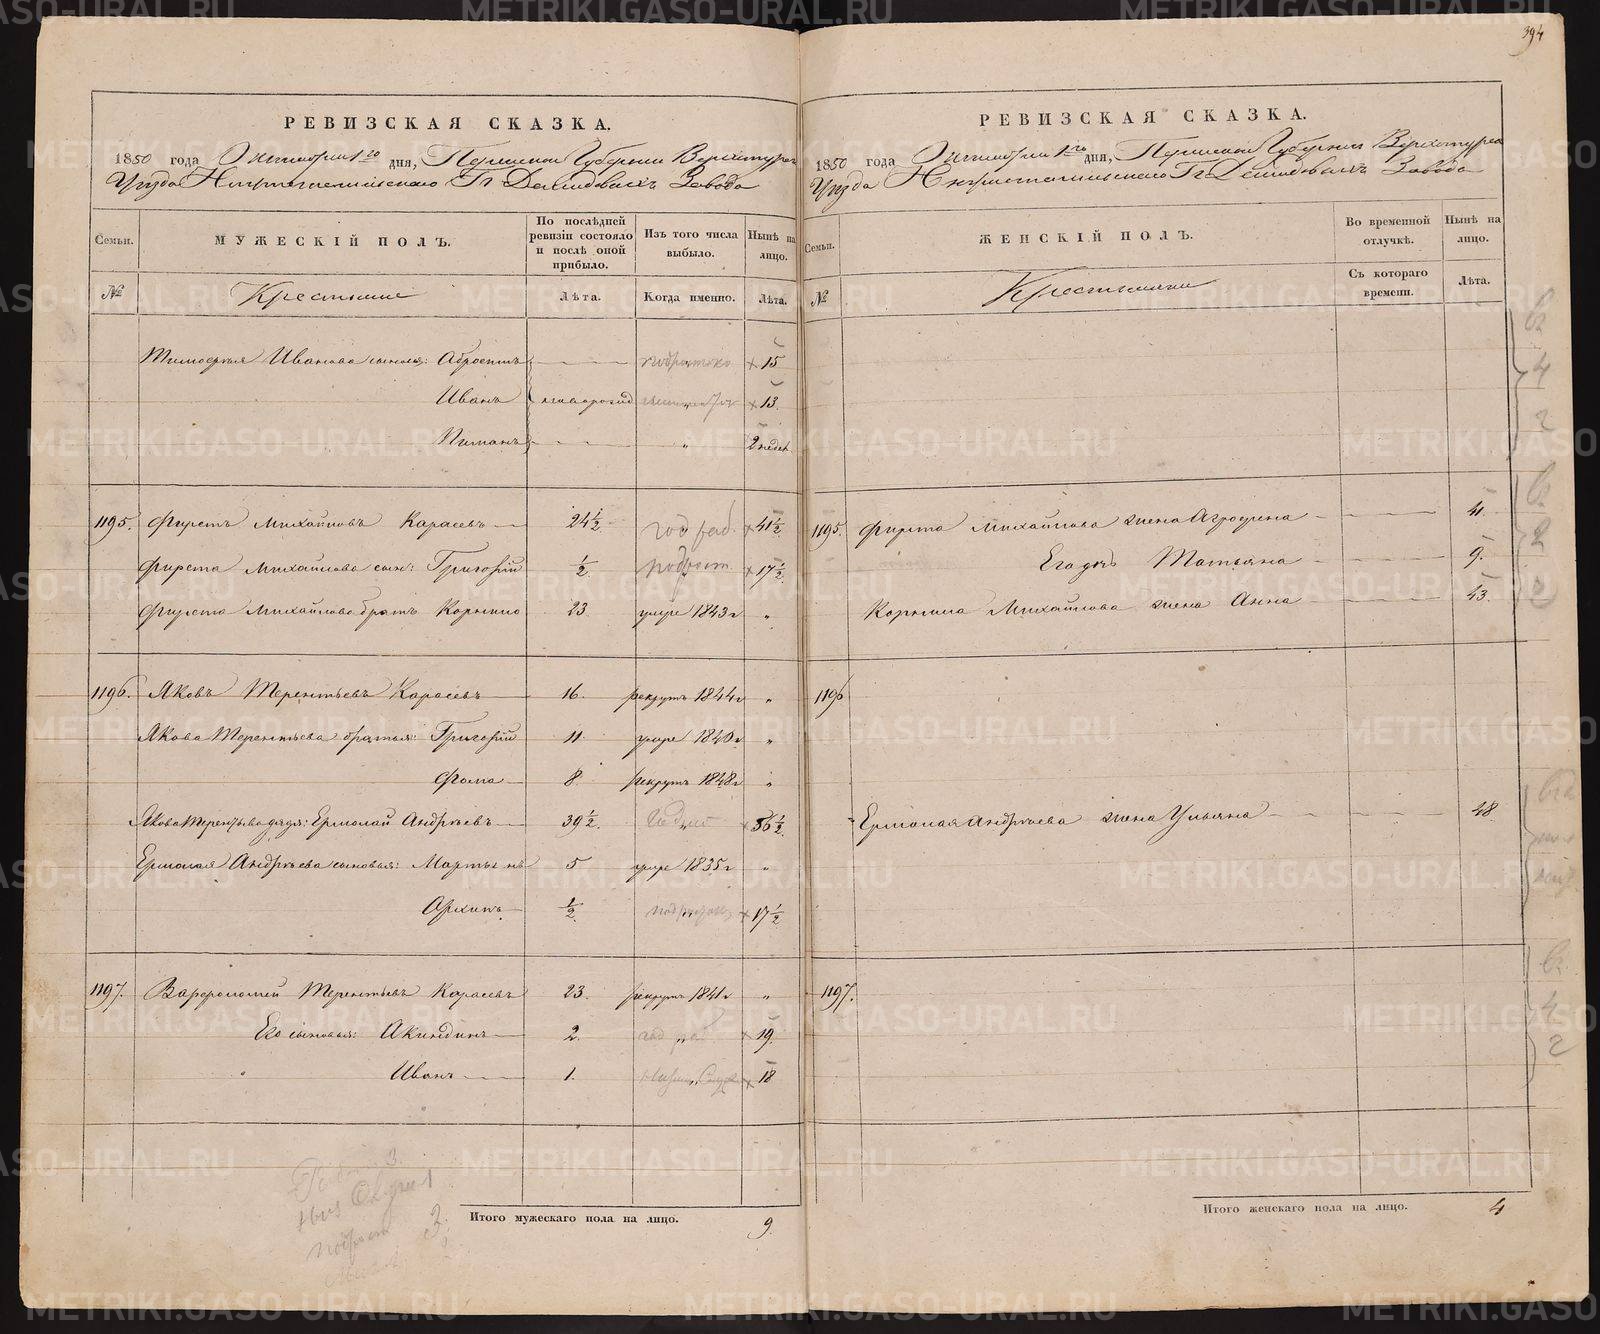 394
РЕВИЗСКАЯ СКАЗКА.
1850 года Октября 1го дня, Пермской Губернии Верхотурск
Уѣзда Нижнетагильскаго Гг Демидовыхъ Завода
Семьи.
МУЖЕСКІЙ ПОЛЪ.
По послѣдней ревизіи состояло и послѣ оной прибыло.
Изъ того числа выбыло.
Нынѣ на лицо.
№
Крестьяне
Лѣта.
Когда именно.
Лѣта.
Тимоѳея Иванова сыновья: Абросимъ 15
Иванъ новорожд 13.
Пиманъ „ 2 недел.
1195. Фирстъ Михайловъ Карасевъ 24½ 41½
Фирста Михайлова сын: Григорій ½ подрост 17½
Фирста Михайлова братъ Корнило 23 умре 1843 г „
1196. Яковъ Терентьевъ Карасевъ 16. рекрутъ 1844 г „
Якова Терентьева братья: Григорій 11. умре 1840 г „
Фома 8. рекрутъ 1848 г „
Якова Терентьева дядя: Ермолай Андреевъ 39½. 56½
Ермолая Андреева сыновья: Мартынъ 5 умре 1835 г „
Архипъ ½ 17½
1197. Варфоломей Терентьевъ Карасевъ 23. рекрутъ 1841 г „
Его сыновья: Акиндинъ 2. „ 19.
Иванъ 1. 18
Итого мужескаго пола на лицо. 9.
РЕВИЗСКАЯ СКАЗКА.
1850 года Октября 1го дня, Пермской Губернии Верхотурск
Уѣзда Нижнетагильскаго Гг Демидовыхъ Завода
Семьи.
ЖЕНСКІЙ ПОЛЪ.
Во временной отлучкѣ.
Нынѣ на лицо.
№
Крестьянки
Съ котораго времени.
Лѣта.
1195. Фирста Михайлова жена Агрофина 41.
Его дочь Татьяна 9.
Корнила Михайлова жена Анна 43.
1196
Ермолая Андреева жена Ульяна 48.
1197.
Итого женскаго пола на лицо. 4
METRIKI.GASO-URAL.RU